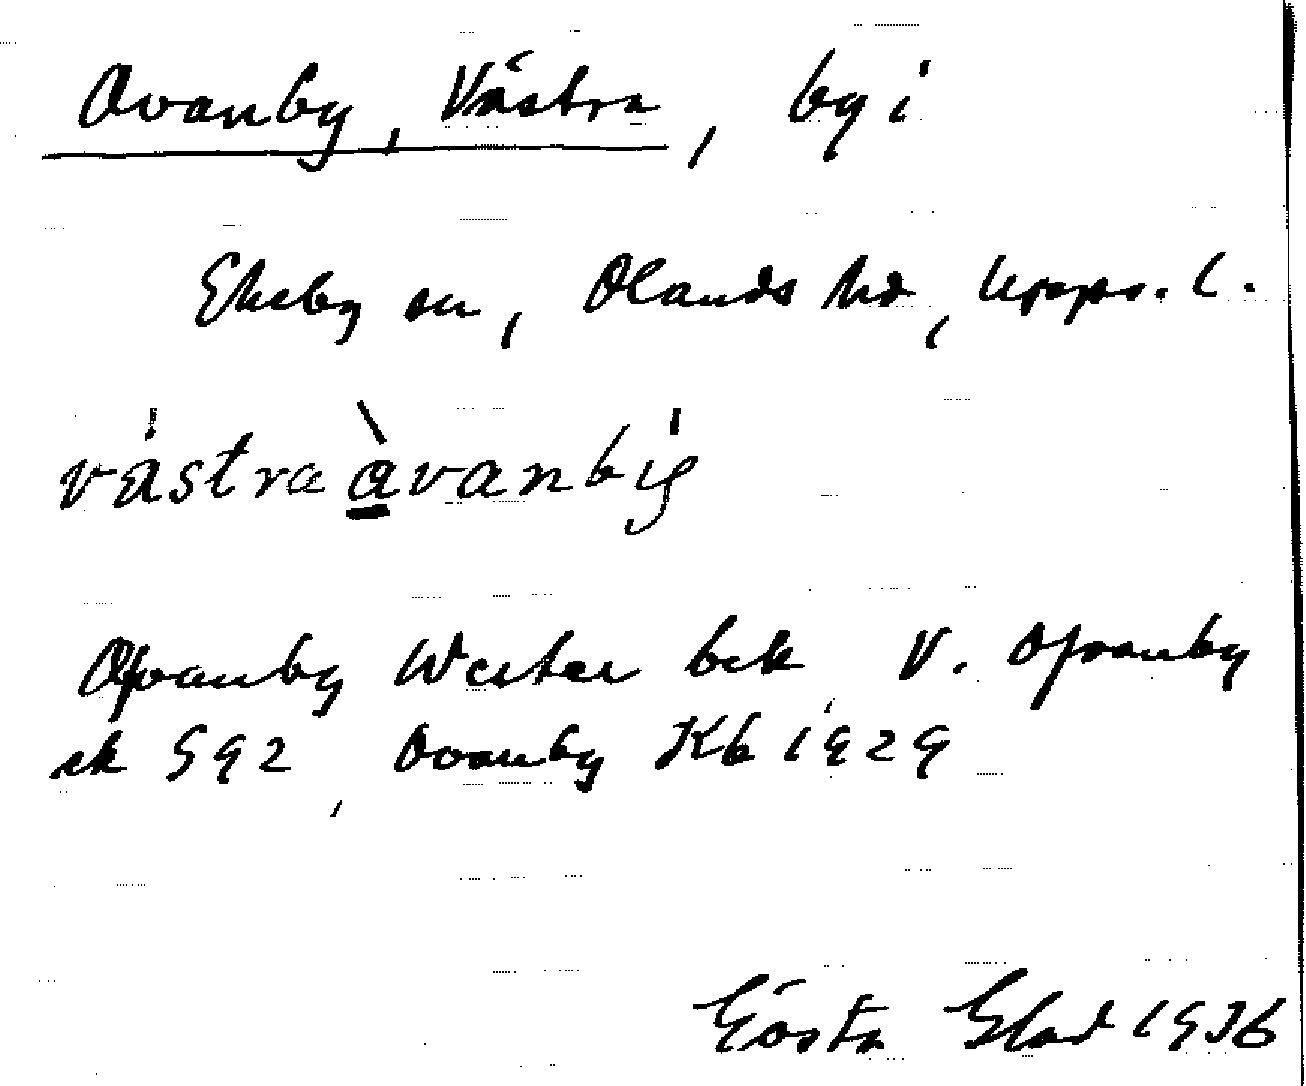 Ovanby, Västra, by i
Ekeby sn, Olands hd, Upps. l.
västra àvanbig
Ofvanby Wester bek V. Ofvanby
sk 592, Ovanby Kb 1929
Gösta Glad 1936